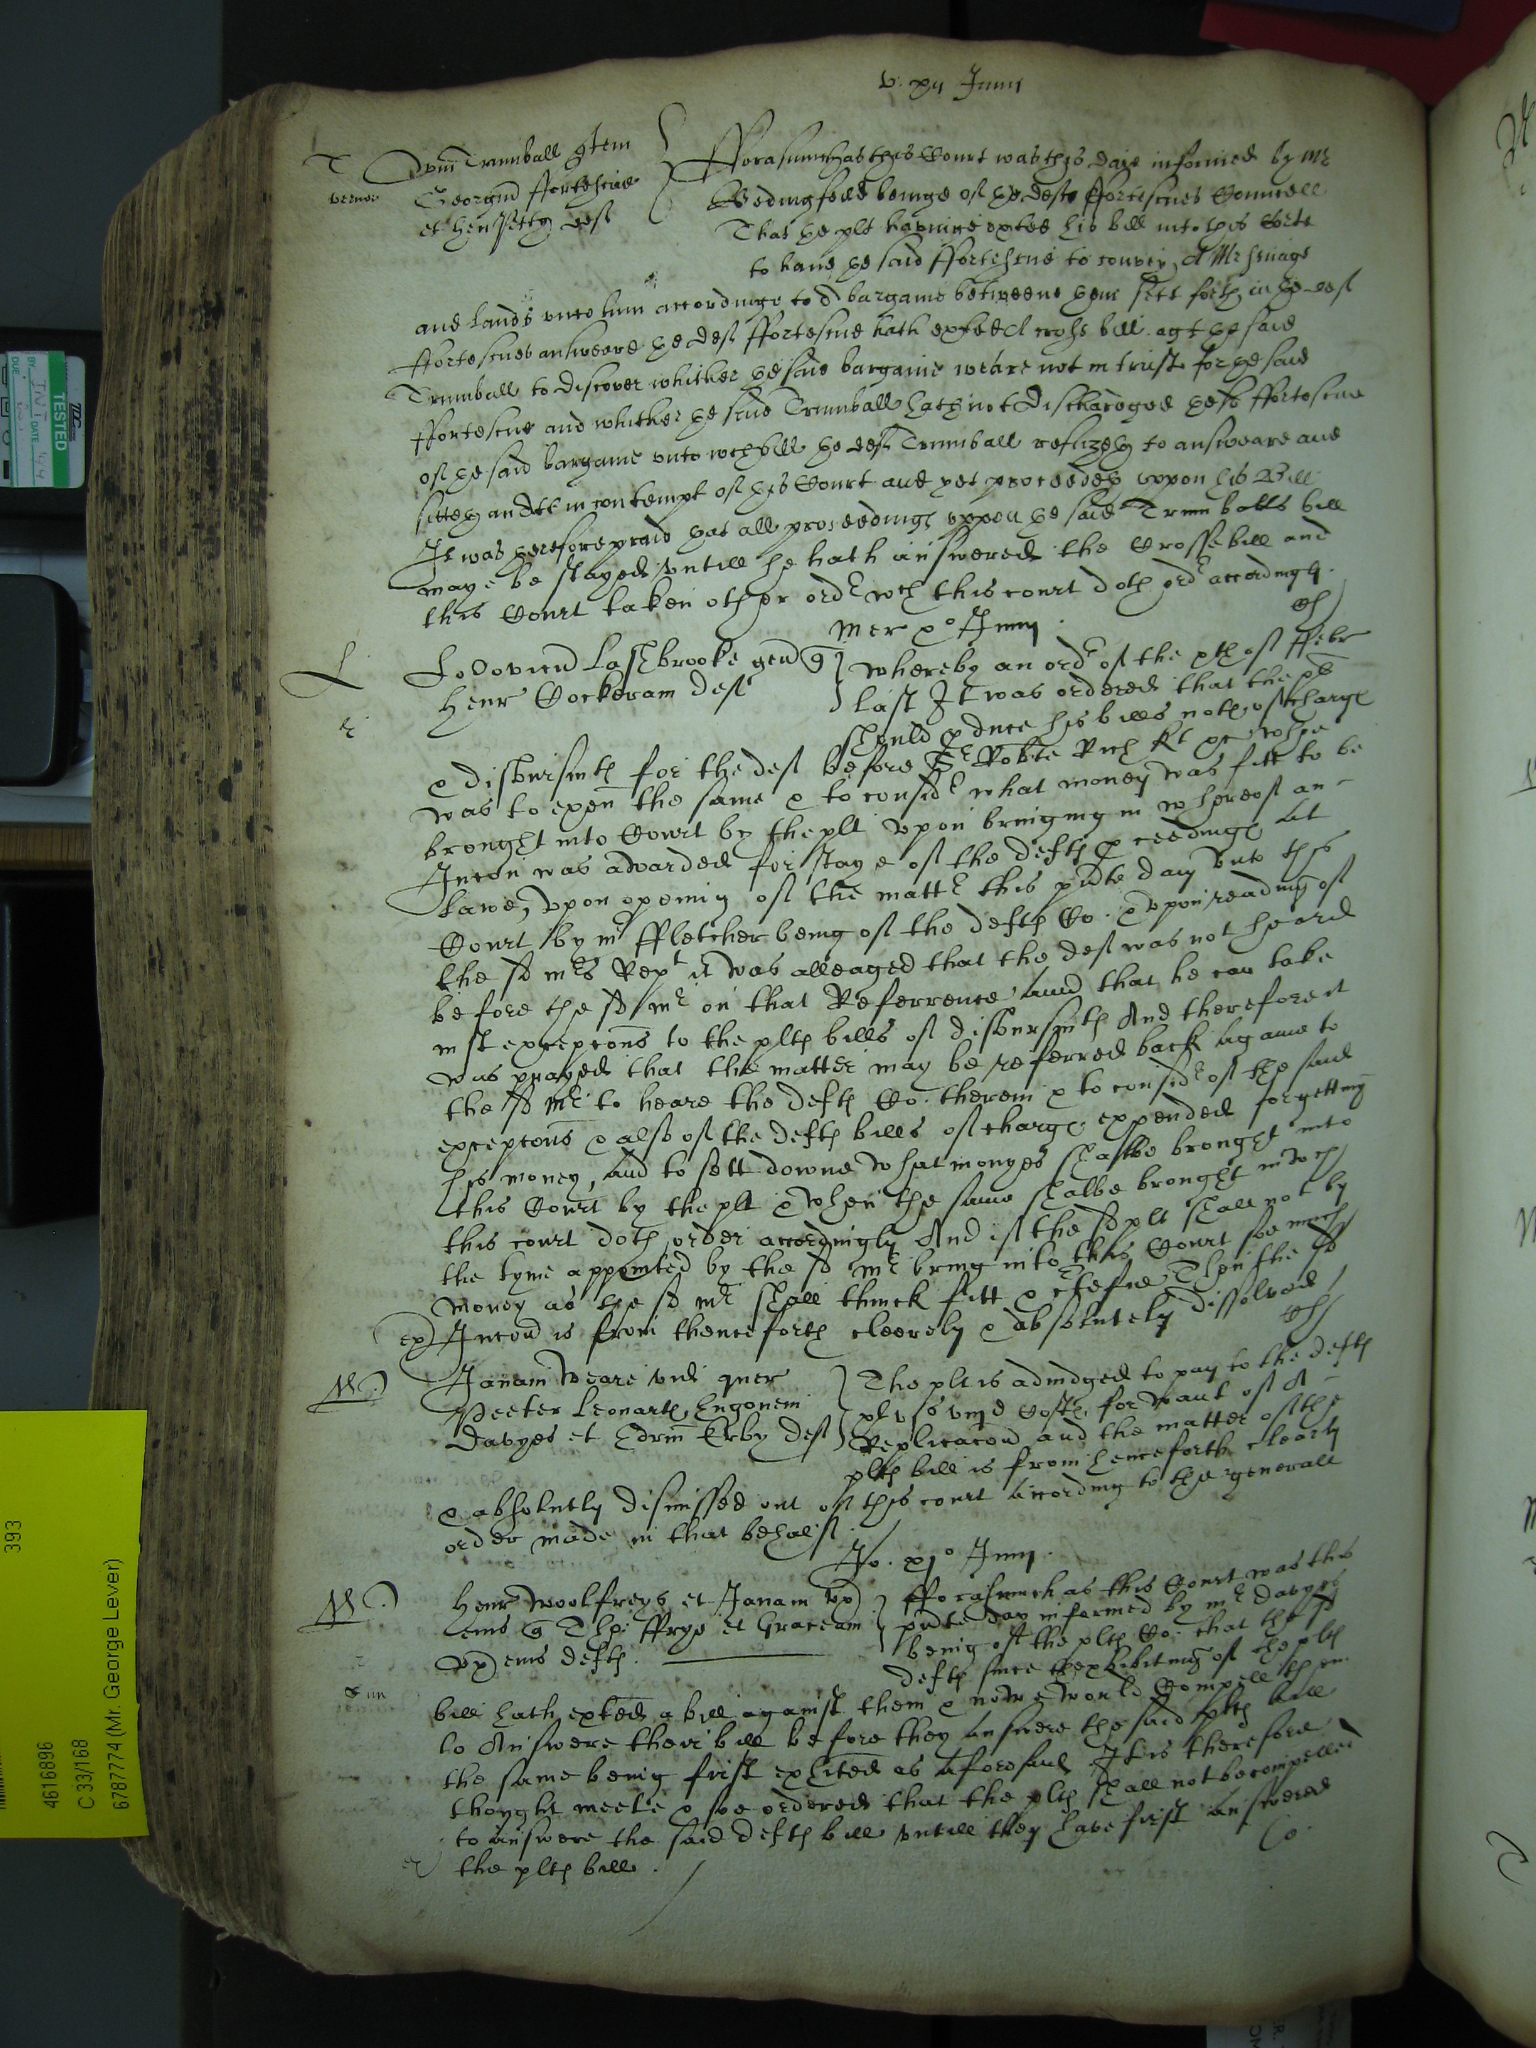 v. xij Junij
T
Willm Trumball gen quer
Georgiu Fortescue
et Hen Petty def
verner
Fforasmuchas this Court was this daie informed by Mr
Bedingfeild beinge of the defts Ffortescues Councell
That the plt havinge exited his bill into this Corte
to have the said Ffortescue to convey A Messuage
and lands unto him accordinge to A bargaine betweene them sett forth in the def
Ffortescues answeare the def Ffortescue hath exited A crosse bill agt the said
Trumball to discover whither the said bargaine weare not in trust for the said
Ffortescue and whither the said Trumball hath not discharged the Ffortescue
of the said bargaine unto wch bill the def Trumball refuzeth to answeare and
sitteth in contempt of this Court and yet proceedes uppon his Bill
It was therefore praid that all proceedings uppon the said Trumballs bill
maye be stayed untill he hath answered the Crosse bill and
this Court taken other ordr wch this court doth ordr accordingly.
Mer xo Junij
L
Lodovicu Lashbrooke gen quer
Henr Cockeram def
whereby an ordr of the xth of Ffebr
last It was ordered that the plt
should produce his bills noth of charge
& disbursmts for the def before Sr Robte Rich Kt
was to exam the same & to considr what money was fitt to be
brought into Court by the plt upon bringing in whereof an
Iniuncon was awarded for stay of the defts proceedings at
Lawe, upon opening of the mattr this pnte day unto this
Court by mr Ffletcher being of the defts Co. & upon reading of
the sd mrs Rept it was alleaged that the def was not heard
before the sd mr on that Referrence and that he can take
iust excepcons to the plts bills of disbursmts And therefore it
was prayed that the matter may be referred back againe to
the sd mr to heare the defts Co. therein & to considr of the said
excepcons & also of the defts bills of charge expended for getting
his money, and to sett downe what monyes shalbe brought into
this Court by the plt & when the same shalbe brought in wch
this court doth order accordingly And if the sd plt shall not by
the tyme appointed by the sd mr bring into this Court soe much
money as the sd mr shall thinck fitt & certefie Then the sd
ex Iniuncon is from thenceforth cleerely & absolutely dissolved
Janam Weare vid quer
Peeter Leonarts, Hugonem
Davyes et Edrm Kirby def
The plt is adiudged to pay to the defts
xls vs viijd Costs for want of A
Replicacon and the matter of the
plts bill is from henceforth cleerly
& absolutly dismissed out of this court according to the generall
order made in that behalf
Jo. xjo Junij
Henr Woolfreys et Janam ux
eius quer Tho: Ffrye et Graceam
ux eius defts.
Fforasmuch as this Court was this
pnte day informed by mr Davyes
being of the plts Co. that the sd
defts since thexhibiting of the plts
bill hath exited a bill against them & nowe would Compell them
to Answere their bill before they answere the said plts bill
the same being first exhited as aforesaid It is therefore
thought meete & soe ordered that the plts shall not be compelled
to answere the said defts bill untill they have first answered
ex the plts bill.
TESTED
393
4616896
C 33/168
6787774 (Mr. George Lever)